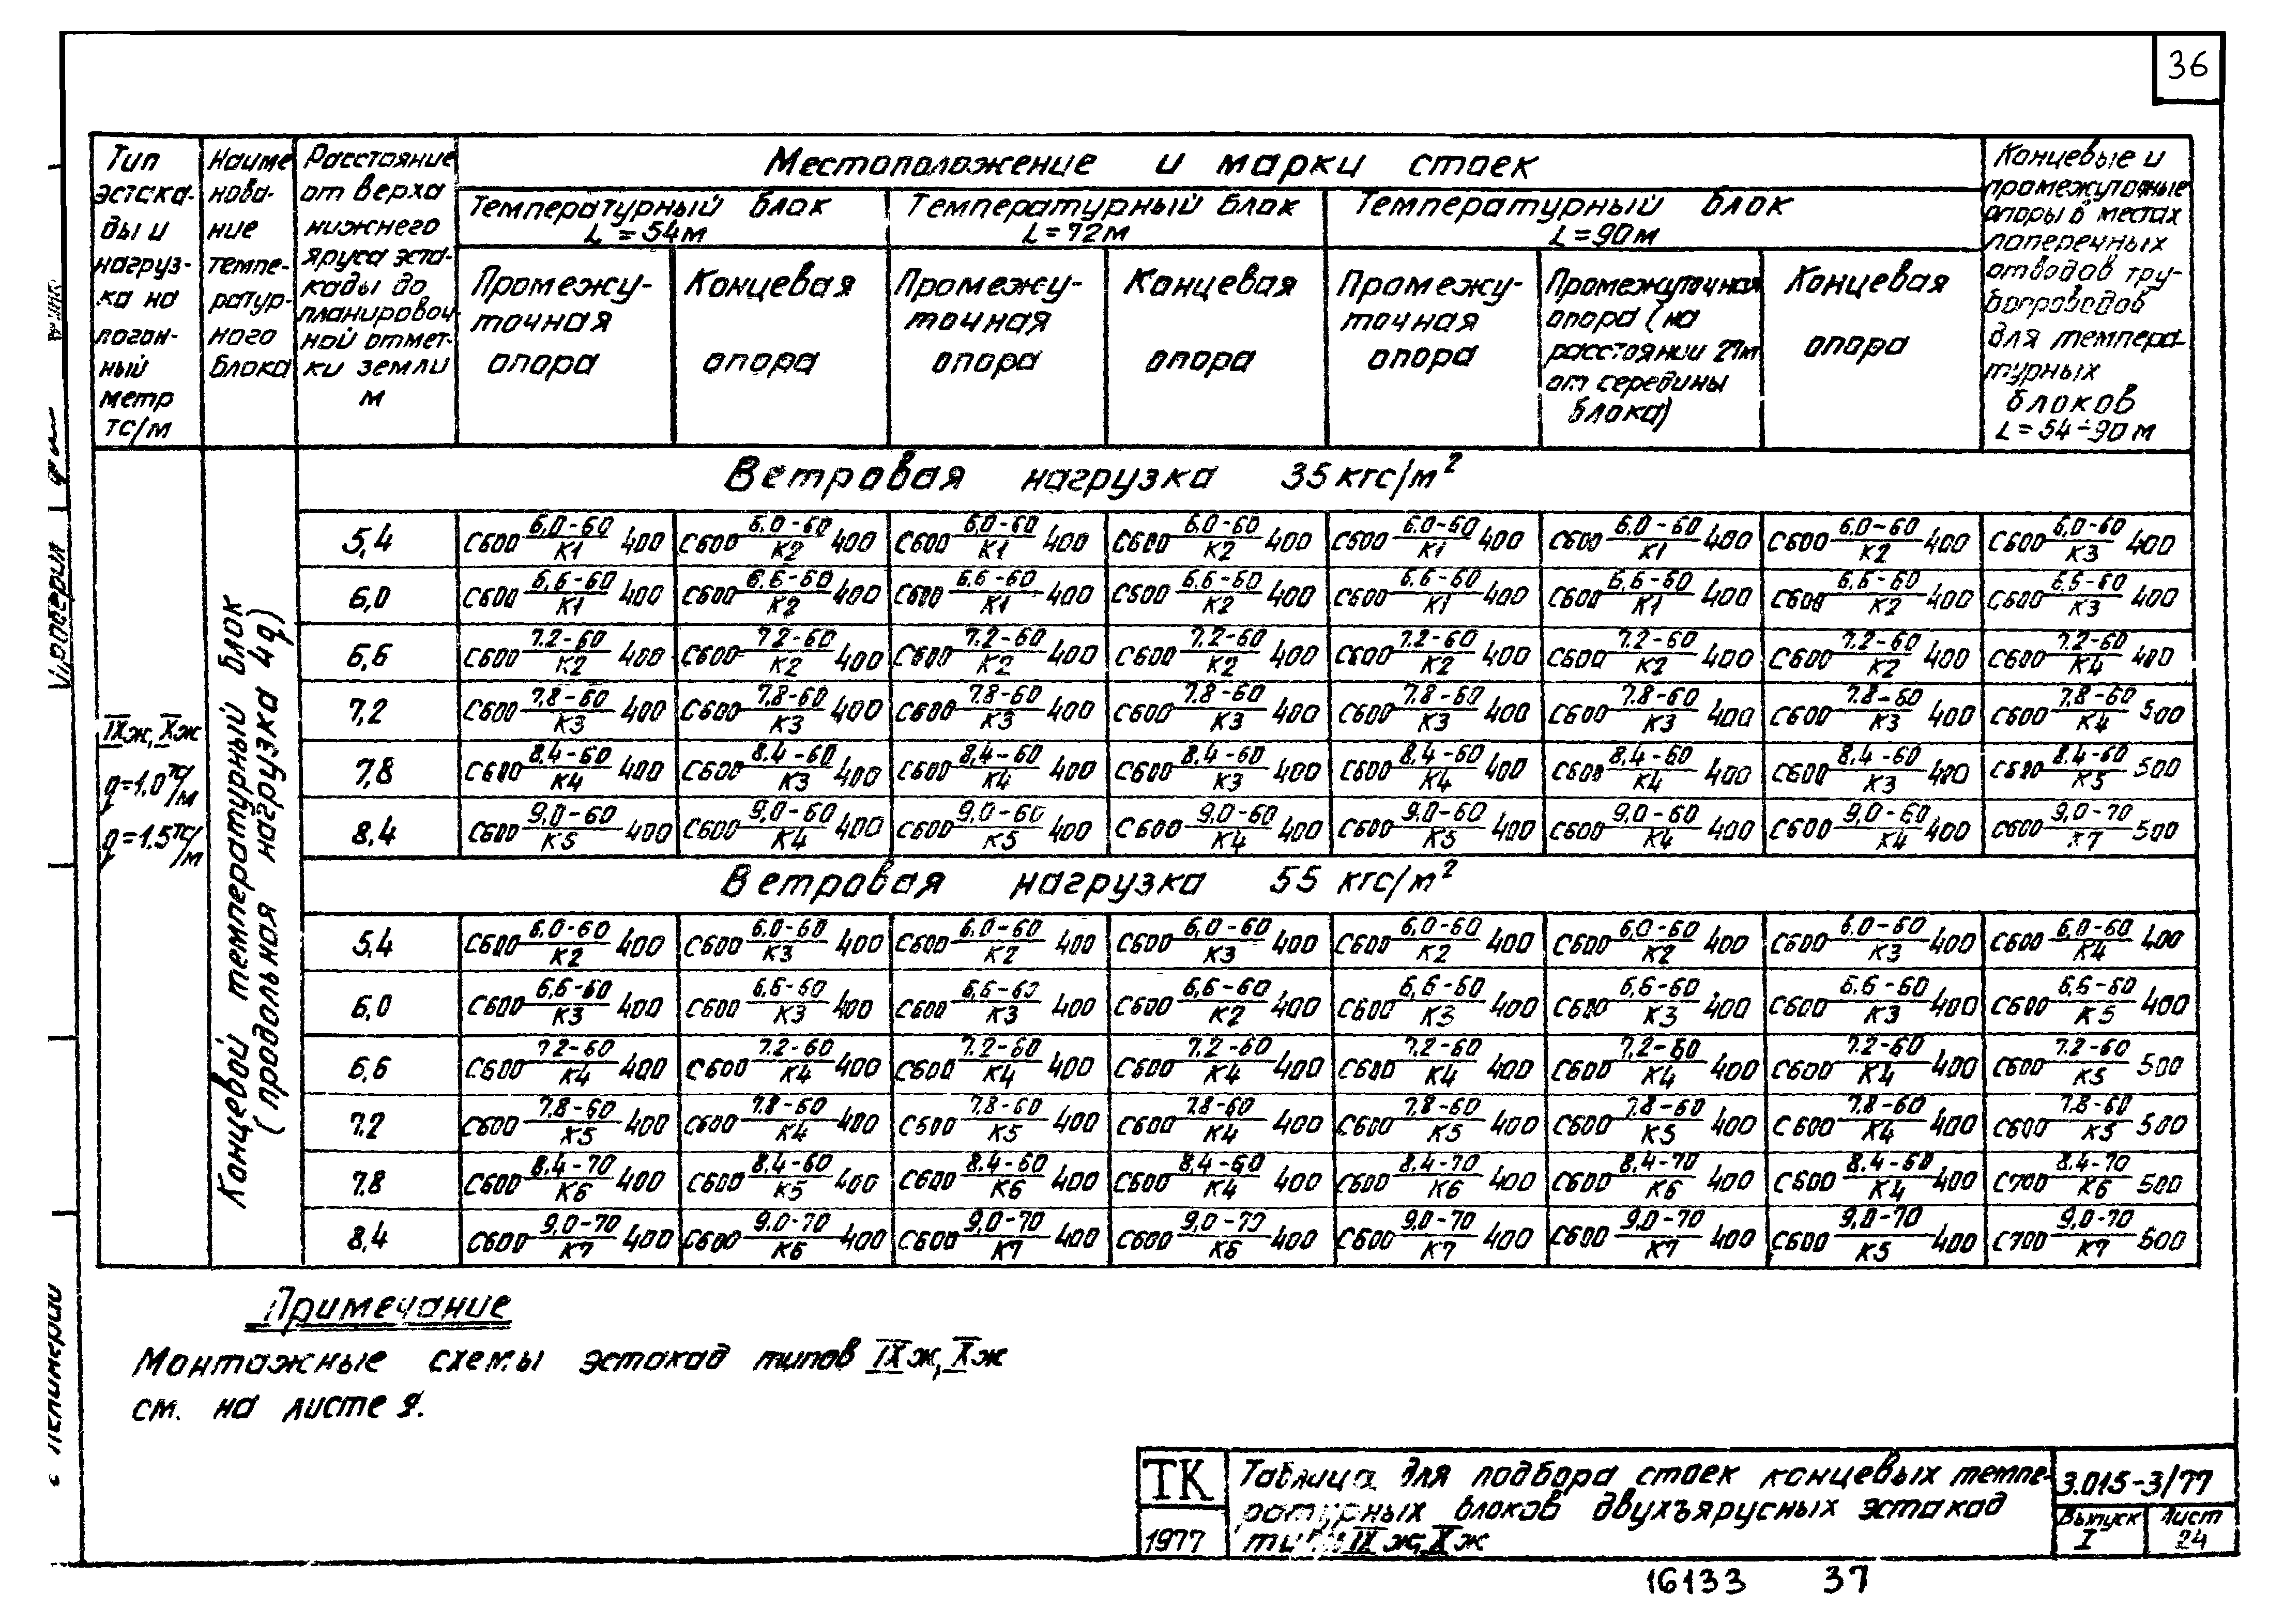 36
Тип эстака-ды и нагруз-ка на погон-ный метр тс/м
Наиме нова-ние темпе-ратур-ного блока
Расстояние от верха нижнего яруса эста-кады до планировоч-ной отмет-ки земли м
Местоположение и марки стоек
Температурный блок L=54м
Температурный блок L=72м
Температурный блок L=90м
Промежу-точная опора
Концевая опора
Промежу-точная опора
Концевая опора
Промежу-точная опора
Промежуточная опора (на расстоянии 21м от середины блока)
Концевая опора
Концевые и промежуточные опоры в местах поперечных отводов тру-бопроводов для темпера-турных блоков L=54÷90м
IXж, Xж
q=1.0тс/м
q=1.5тс/м
Концевой температурный блок
(продольная нагрузка 4q)
Ветровая нагрузка 35кгс/м²
5,4 С600 6,0-60/К1 400 С600 6,0-60/К2 400 С600 6,0-60/К1 400 С600 6,0-60/К2 400 С600 6,0-60/К1 400 С600 6,0-60/К1 400 С600 6,0-60/К2 400 С600 6,0-60/К3 400
6,0 С600 6,6-60/К1 400 С600 6,6-60/К2 400 С600 6,6-60/К1 400 С600 6,6-60/К2 400 С600 6,6-60/К1 400 С600 6,6-60/К1 400 С600 6,6-60/К2 400 С600 6,6-60/К3 400
6,6 С600 7.2-60/К2 400 С600 7.2-60/К2 400 С600 7.2-60/К2 400 С600 7.2-60/К2 400 С600 7.2-60/К2 400 С600 7.2-60/К2 400 С600 7.2-60/К2 400 С600 7.2-60/К4 400
7,2 С600 7.8-60/К3 400 С600 7.8-60/К3 400 С600 7.8-60/К3 400 С600 7.8-60/К3 400 С600 7.8-60/К3 400 С600 7.8-60/К3 400 С600 7.8-60/К3 400 С600 7.8-60/К4 500
7,8 С600 8,4-60/К4 400 С600 8.4-60/К3 400 С600 8,4-60/К4 400 С600 8,4-60/К3 400 С600 8,4-60/К4 400 С600 8,4-60/К4 400 С600 8.4-60/К3 400 С600 8.4-60/К5 500
8,4 С600 9,0-60/К5 400 С600 9,0-60/К4 400 С600 9,0-60/К5 400 С600 9,0-60/К4 400 С600 9,0-60/К5 400 С600 9,0-60/К4 400 С600 9,0-60/К4 400 С600 9,0-70/К7 500
Ветровая нагрузка 55 кгс/м²
5,4 С600 6,0-60/К2 400 С600 6,0-60/К3 400 С600 6,0-60/К2 400 С600 6,0-60/К3 400 С600 6,0-60/К2 400 С600 6,0-60/К2 400 С600 6,0-60/К3 400 С600 6,0-60/К4 400
6,0 С600 6,6-60/К3 400 С600 6,6-60/К3 400 С600 6,6-60/К3 400 С600 6,6-60/К2 400 С600 6,6-60/К3 400 С600 6,6-60/К3 400 С600 6.6-60/К3 400 С600 6,6-60/К5 400
6,6 С600 7.2-60/К4 400 С600 7.2-60/К4 400 С600 7.2-60/К4 400 С600 7.2-60/К4 400 С600 7.2-60/К4 400 С600 7.2-60/К4 400 С600 7.2-60/К4 400 С600 7.2-60/К5 500
7.2 С600 7.8-60/К5 400 С600 7.8-60/К4 400 С600 7.8-60/К5 400 С600 7.8-60/К4 400 С600 7.8-60/К5 400 С600 7.8-60/К5 400 С600 7.8-60/К4 400 С600 7.8-60/К5 500
7.8 С600 8.4-70/К6 400 С600 8.4-60/К5 400 С600 8.4-60/К6 400 С600 8.4-60/К4 400 С600 8.4-70/К6 400 С600 8.4-70/К6 400 С600 8.4-60/К4 400 С700 8.4-70/К6 500
8,4 С600 9,0-70/К7 400 С600 9.0-70/К6 400 С600 9,0-70/К7 400 С600 9,0-70/К6 400 С600 9,0-70/К7 400 С600 9.0-70/К7 400 С600 9,0-70/К5 400 С700 9,0-70/К7 600
Примечание
Монтажные схемы эстакад типов IXж, Xж
см. на листе 8.
ТК
1977
Таблица для подбора стоек концевых темпе-
ратурных блоков двухъярусных эстакад
типов IXж, Xж
3.015-3/77
Выпуск I
Лист 24
16133 37